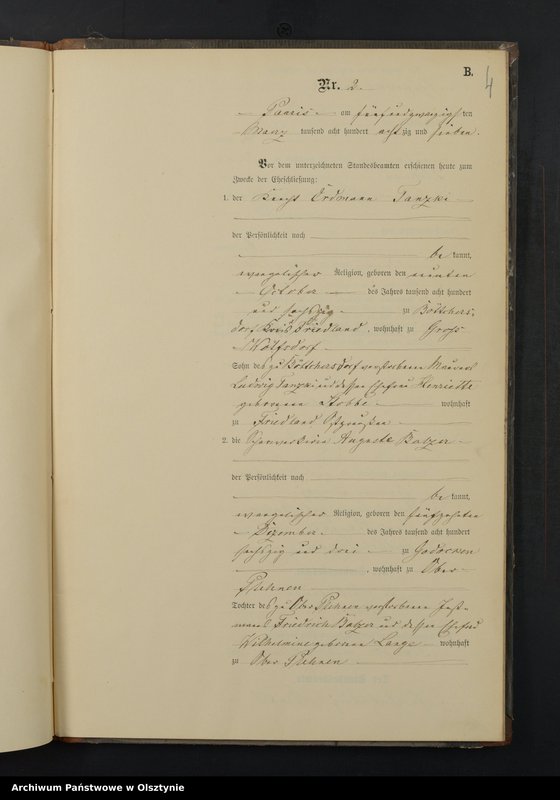 B.
4
Nr. 2.
Paaris am fünfundzwanzigsten
März tausend acht hundert achtzig und sieben.
Vor dem unterzeichneten Standesbeamten erschienen heute zum
Zwecke der Eheschließung:
1. der Knecht Erdmann Tanzki
der Persönlichkeit nach
be kannt,
evangelischer Religion, geboren den neunten
October des Jahres tausend acht hundert
und sechszig zu Böttchers-
dorf Kreis Friedland, wohnhaft zu Groß
Wolfsdorf
Sohn des zu Böttchersdorf verstorbenen Maurers
Ludwig Tanzki und dessen Ehefrau Henriette
geborenen Stobbe wohnhaft
zu Friedland Ostpreußen
2. die Auguste Balzer
der Persönlichkeit nach
be kannt,
evangelischer Religion, geboren den fünfzehnten
Dezember des Jahres tausend acht hundert
sechszig und drei zu
, wohnhaft zu Ober
Plehnen
Tochter des zu Ober Plehnen verstorbenen Inst-
manns Friedrich Balzer und dessen Ehefrau
Wilhelmine geborenen Lange wohnhaft
zu Ober Plehnen
Archiwum Państwowe w Olsztynie